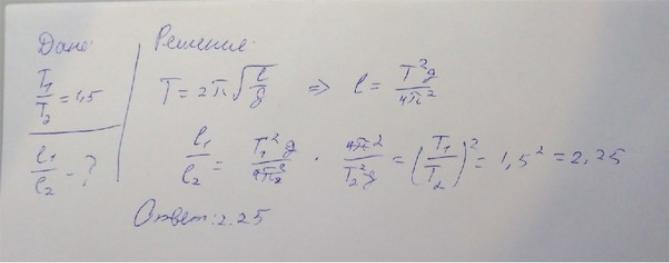 Дано:
T₁/T₂ = 1,5
l₁/l₂ - ?
Решение:
T = 2π√(l/g) => l = T²g/4π²
l₁/l₂ = T₁²g/4π² · 4π²/T₂²g = (T₁/T₂)² = 1,5² = 2,25
Ответ: 2.25